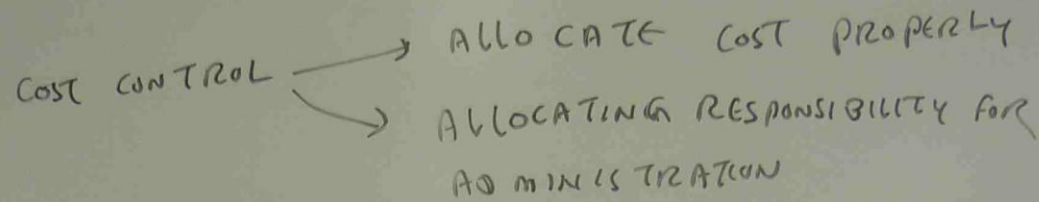 COST CONTROL
ALLOCATE COST PROPERLY
ALLOCATING RESPONSIBILITY FOR
ADMINISTRATION